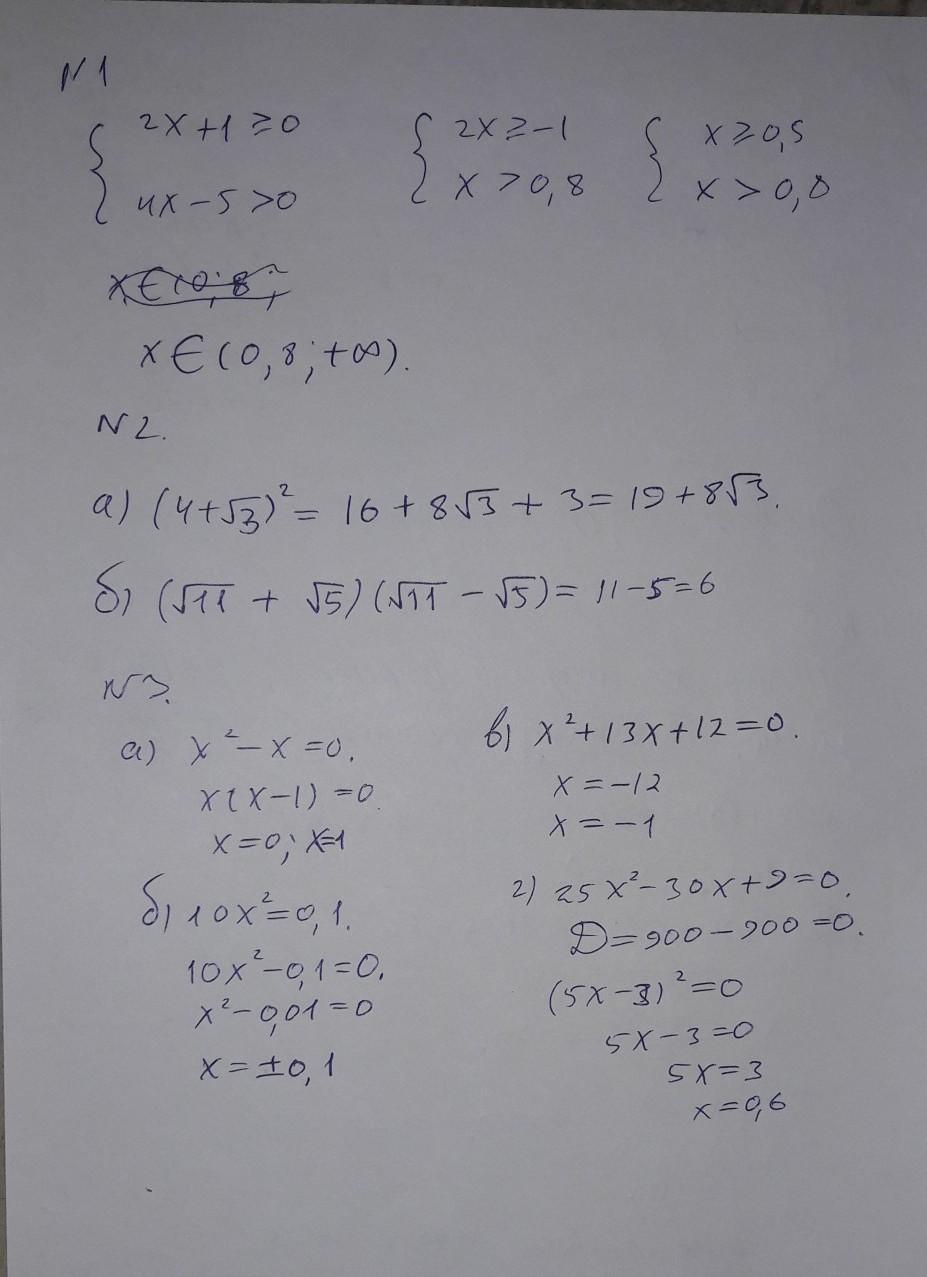 N 1
{ 2x + 1 ⩾ 0   { 2x ⩾ -1   { x ⩾ 0,5
4x - 5 > 0   x > 0,8   x > 0,8
x ∈ (0,8;
x ∈ (0,8; +∞).
N 2.
а) (4+√3)² = 16 + 8√3 + 3 = 19 + 8√3.
б) (√11 + √5)(√11 - √5) = 11 - 5 = 6
N 3.
а) x² - x = 0.
x(x - 1) = 0.
x = 0; x = 1
б) 10x² = 0,1.
10x² - 0,1 = 0.
x² - 0,01 = 0
x = ±0,1
в) x² + 13x + 12 = 0.
x = -12
x = -1
г) 25x² - 30x + 9 = 0.
D = 900 - 900 = 0.
(5x - 3)² = 0
5x - 3 = 0
5x = 3
x = 0,6